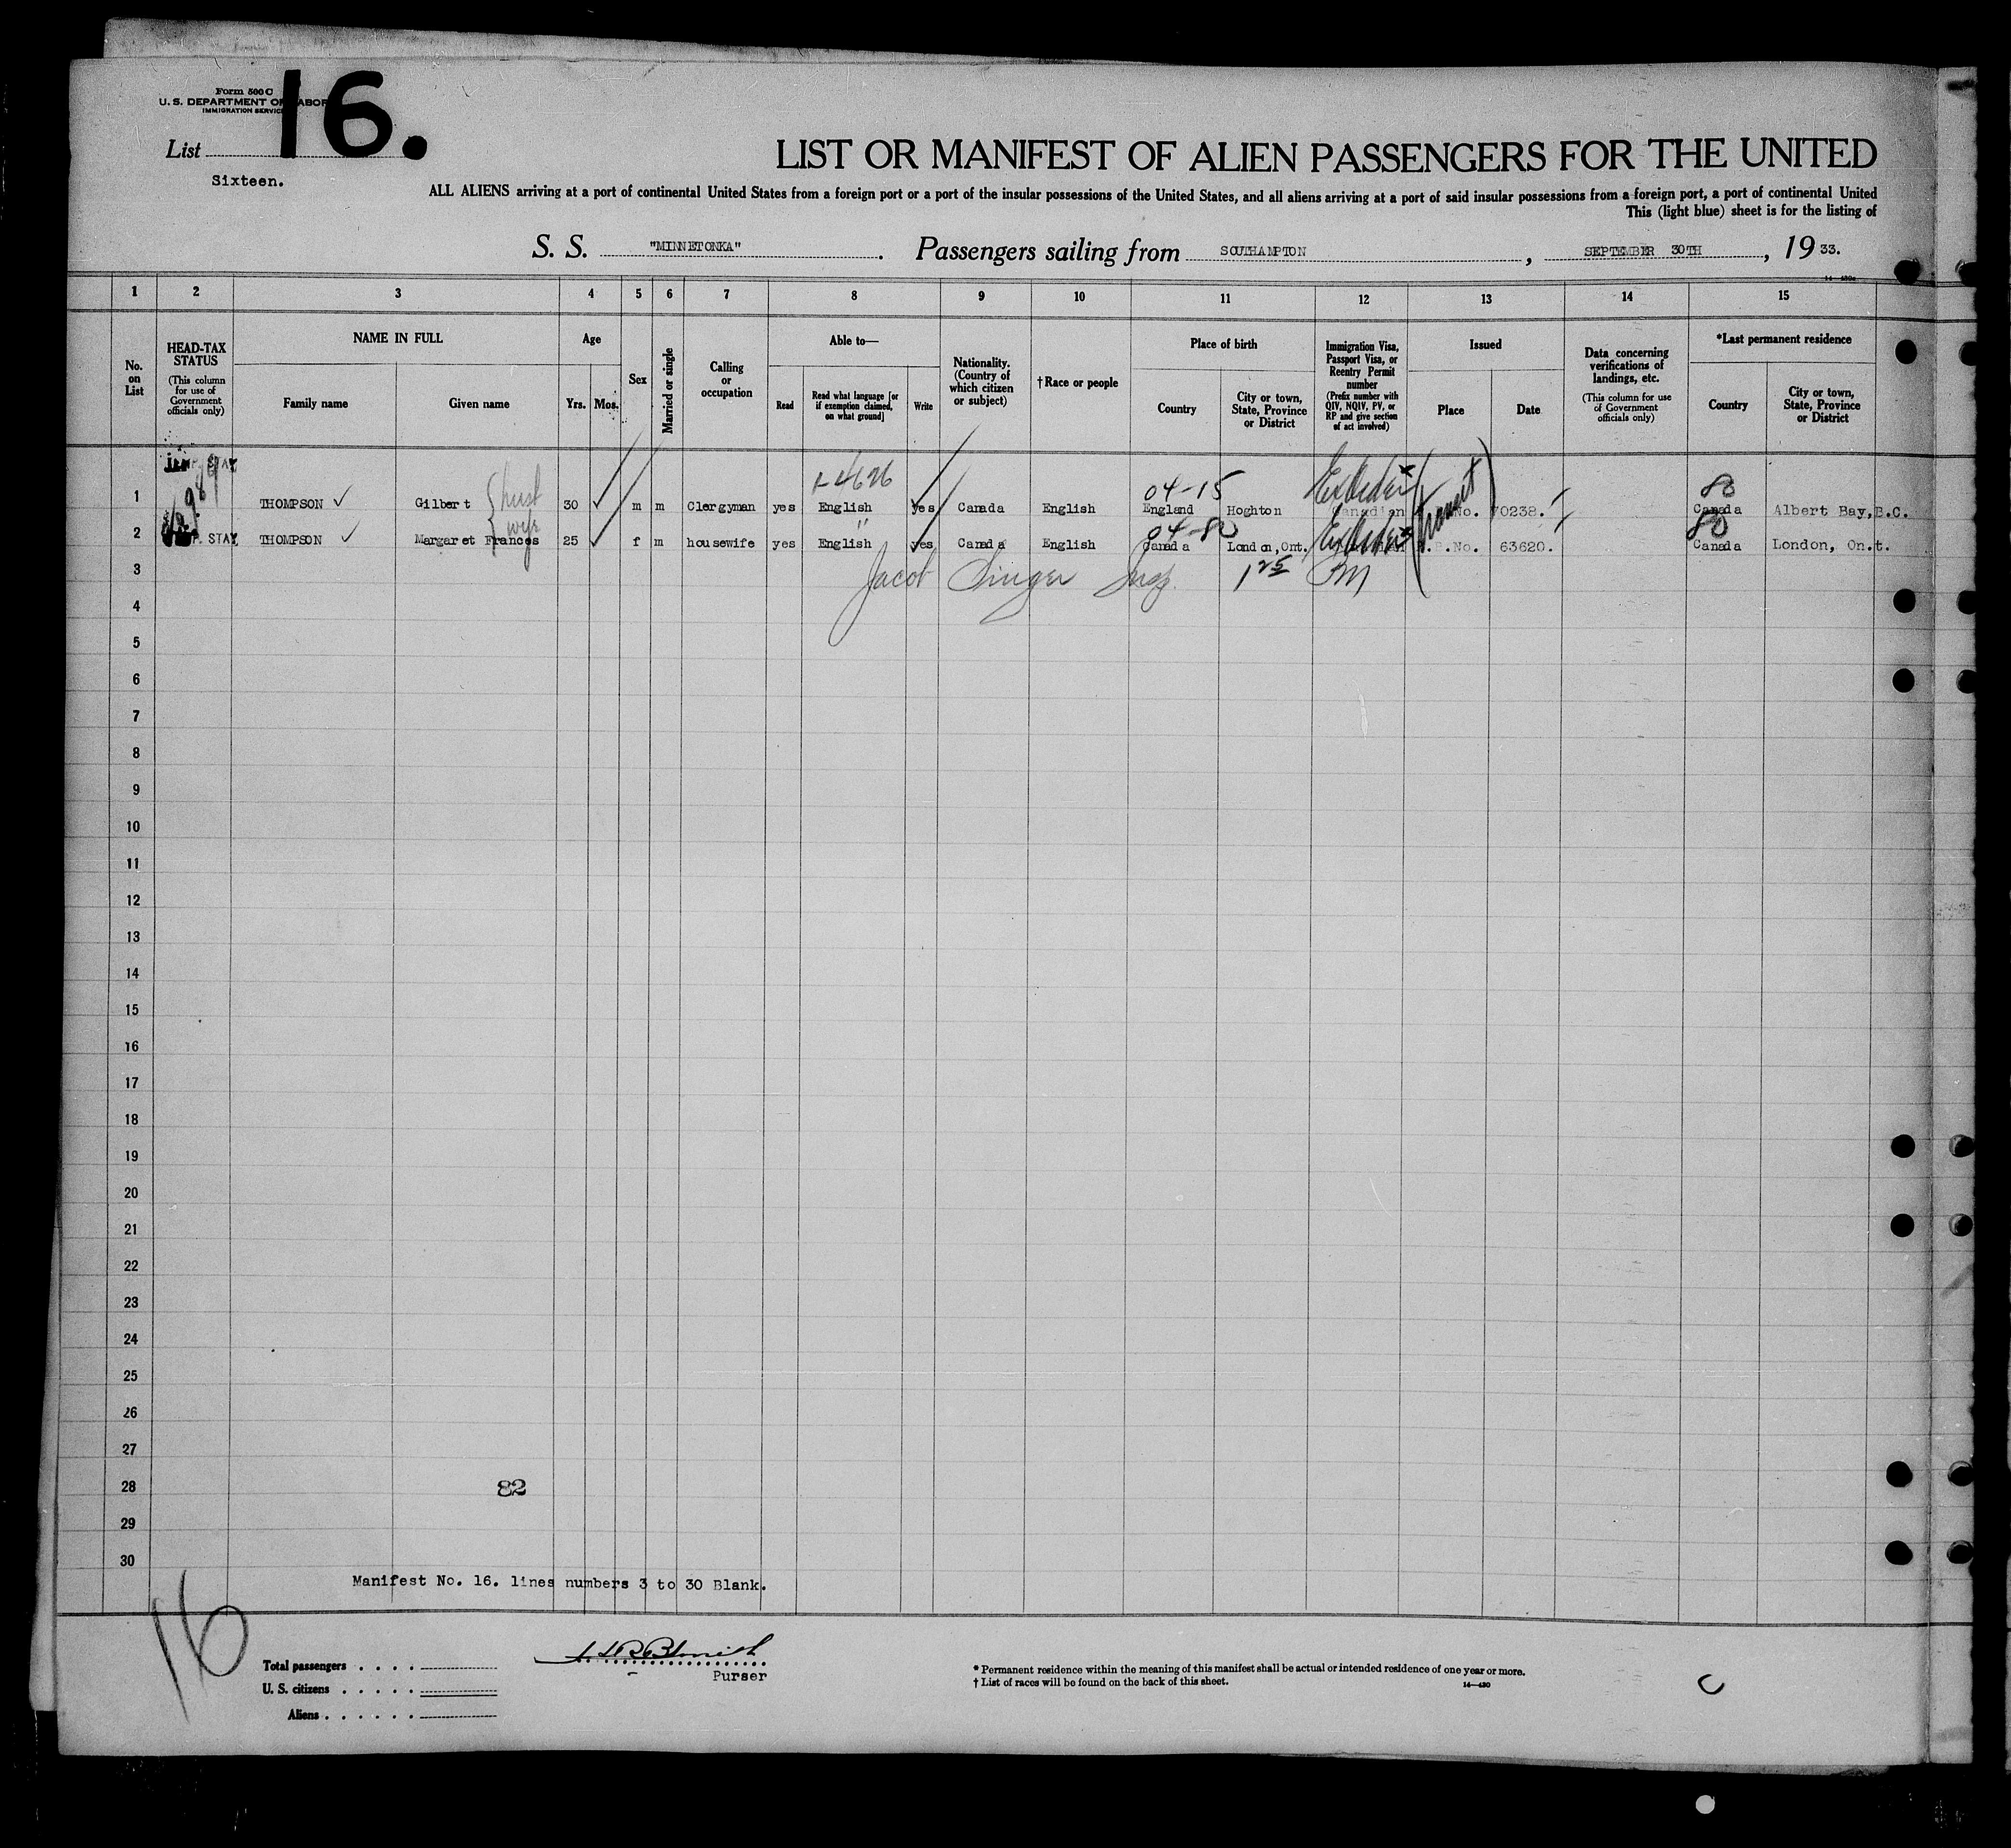 Form 500 C
U. S. DEPARTMENT OF LABOR
IMMIGRATION SERVICE
List 16.
Sixteen.
LIST OR MANIFEST OF ALIEN PASSENGERS FOR THE UNITED
ALL ALIENS arriving at a port of continental United States from a foreign port or a port of the insular possessions of the United States, and all aliens arriving at a port of said insular possessions from a foreign port, a port of continental United
This (light blue) sheet is for the listing of
S. S. "MINNETONKA". Passengers sailing from SOUTHAMPTON, SEPTEMBER 30TH, 19 33.
1 2 3 4 5 6 7 8 9 10 11 12 13 14 15
No. on List
HEAD-TAX STATUS
(This column for use of Government officials only)
NAME IN FULL
Family name Given name
Age
Yrs. Mos.
Sex
Married or single
Calling or occupation
Able to—
Read
Read what language [or if exemption claimed, on what ground]
Write
Nationality. (Country of which citizen or subject)
†Race or people
Place of birth
Country
City or town, State, Province or District
Immigration Visa, Passport Visa, or Reentry Permit number
(Prefix number with QIV, NQIV, PV, or RP and give section of act involved)
Issued
Place Date
Data concerning verifications of landings, etc.
(This column for use of Government officials only)
*Last permanent residence
Country
City or town, State, Province or District
04-15 80
1 THOMPSON Gilbert husb 30 m m Clergyman yes English yes Canada English England Hoghton Canadian No. 70238. Canada Albert Bay,B.C.
04-80 80
2 STAY THOMPSON Margaret Frances 25 f m housewife yes English yes Canada English Canada London,Ont. No. 63620. Canada London, On.t.
(transit)
3 Jacob Singer Insp. 1 25 PM
4
5
6
7
8
9
10
11
12
13
14
15
16
17
18
19
20
21
22
23
24
25
26
27
28 82
29
30
Manifest No. 16. lines numbers 3 to 30 Blank.
16
Total passengers . . . .
U. S. citizens . . . . .
Aliens . . . . . .
Purser
* Permanent residence within the meaning of this manifest shall be actual or intended residence of one year or more.
† List of races will be found on the back of this sheet.
14—430
C